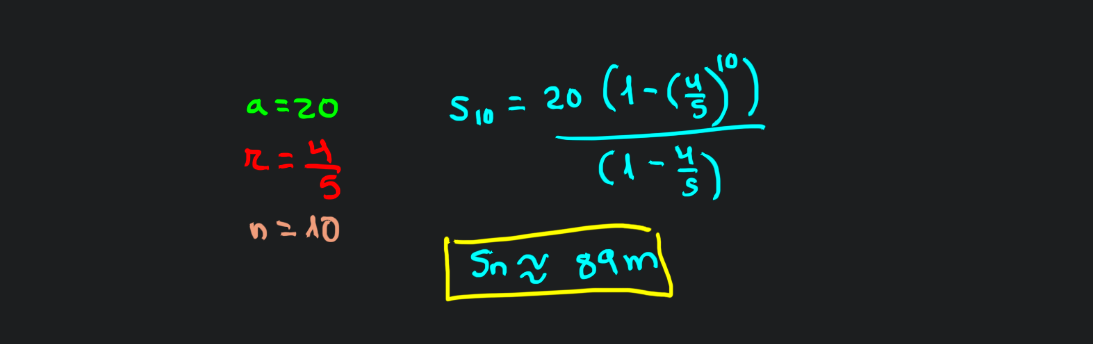 a = 20
r = 4/5
n = 10
S10 = 20 (1 - (4/5)^10) / (1 - 4/5)
Sn ≈ 89 m